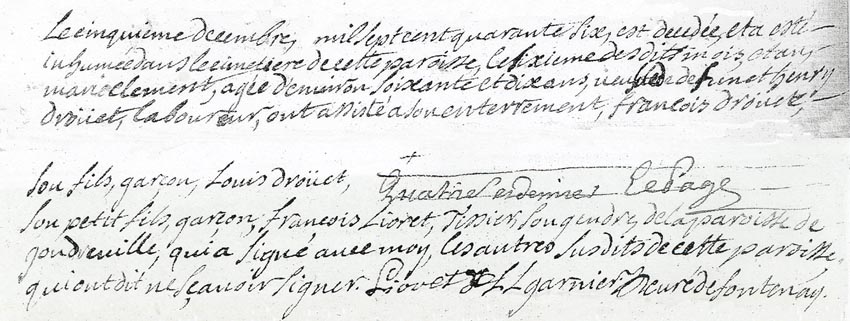 Le cinquieme decembre, mil sept cent quarante six, est decedée, et a esté
inhumée dans le cimetiere de cette paroisse, le sixieme desdits mois et an,
marie clement, agée d'environ soixante et dix ans, veufve de funct henry
droüet, laboureur, ont assisté a son enterrement, françois droüet,
son fils, garçon, Louis droüet, Quatrieme et dernier LePage
son petit fils, garçon, françois Lioret, Tixier, son gendre, de la paroisse de
joudreville, qui a signé avec moy, les autres susdits de cette paroisse,
qui ont dit ne sçavoir signer. Lioret L garnier curé de fontenay.